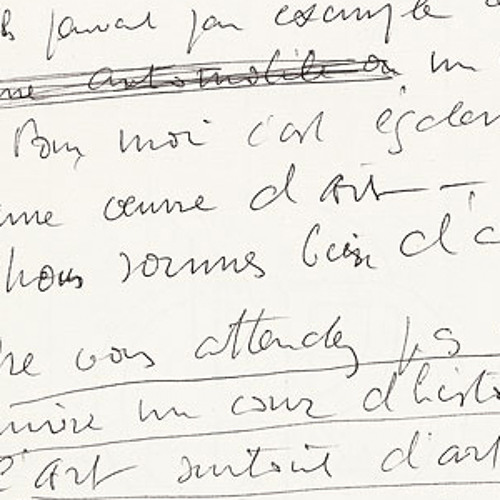 par exemple
automobile ou un
Pour moi c'est égalem
une œuvre d'art —
Nous sommes bien d'a
ne vous attendez pas
uivre un cour d'histo
l'art surtout d'art